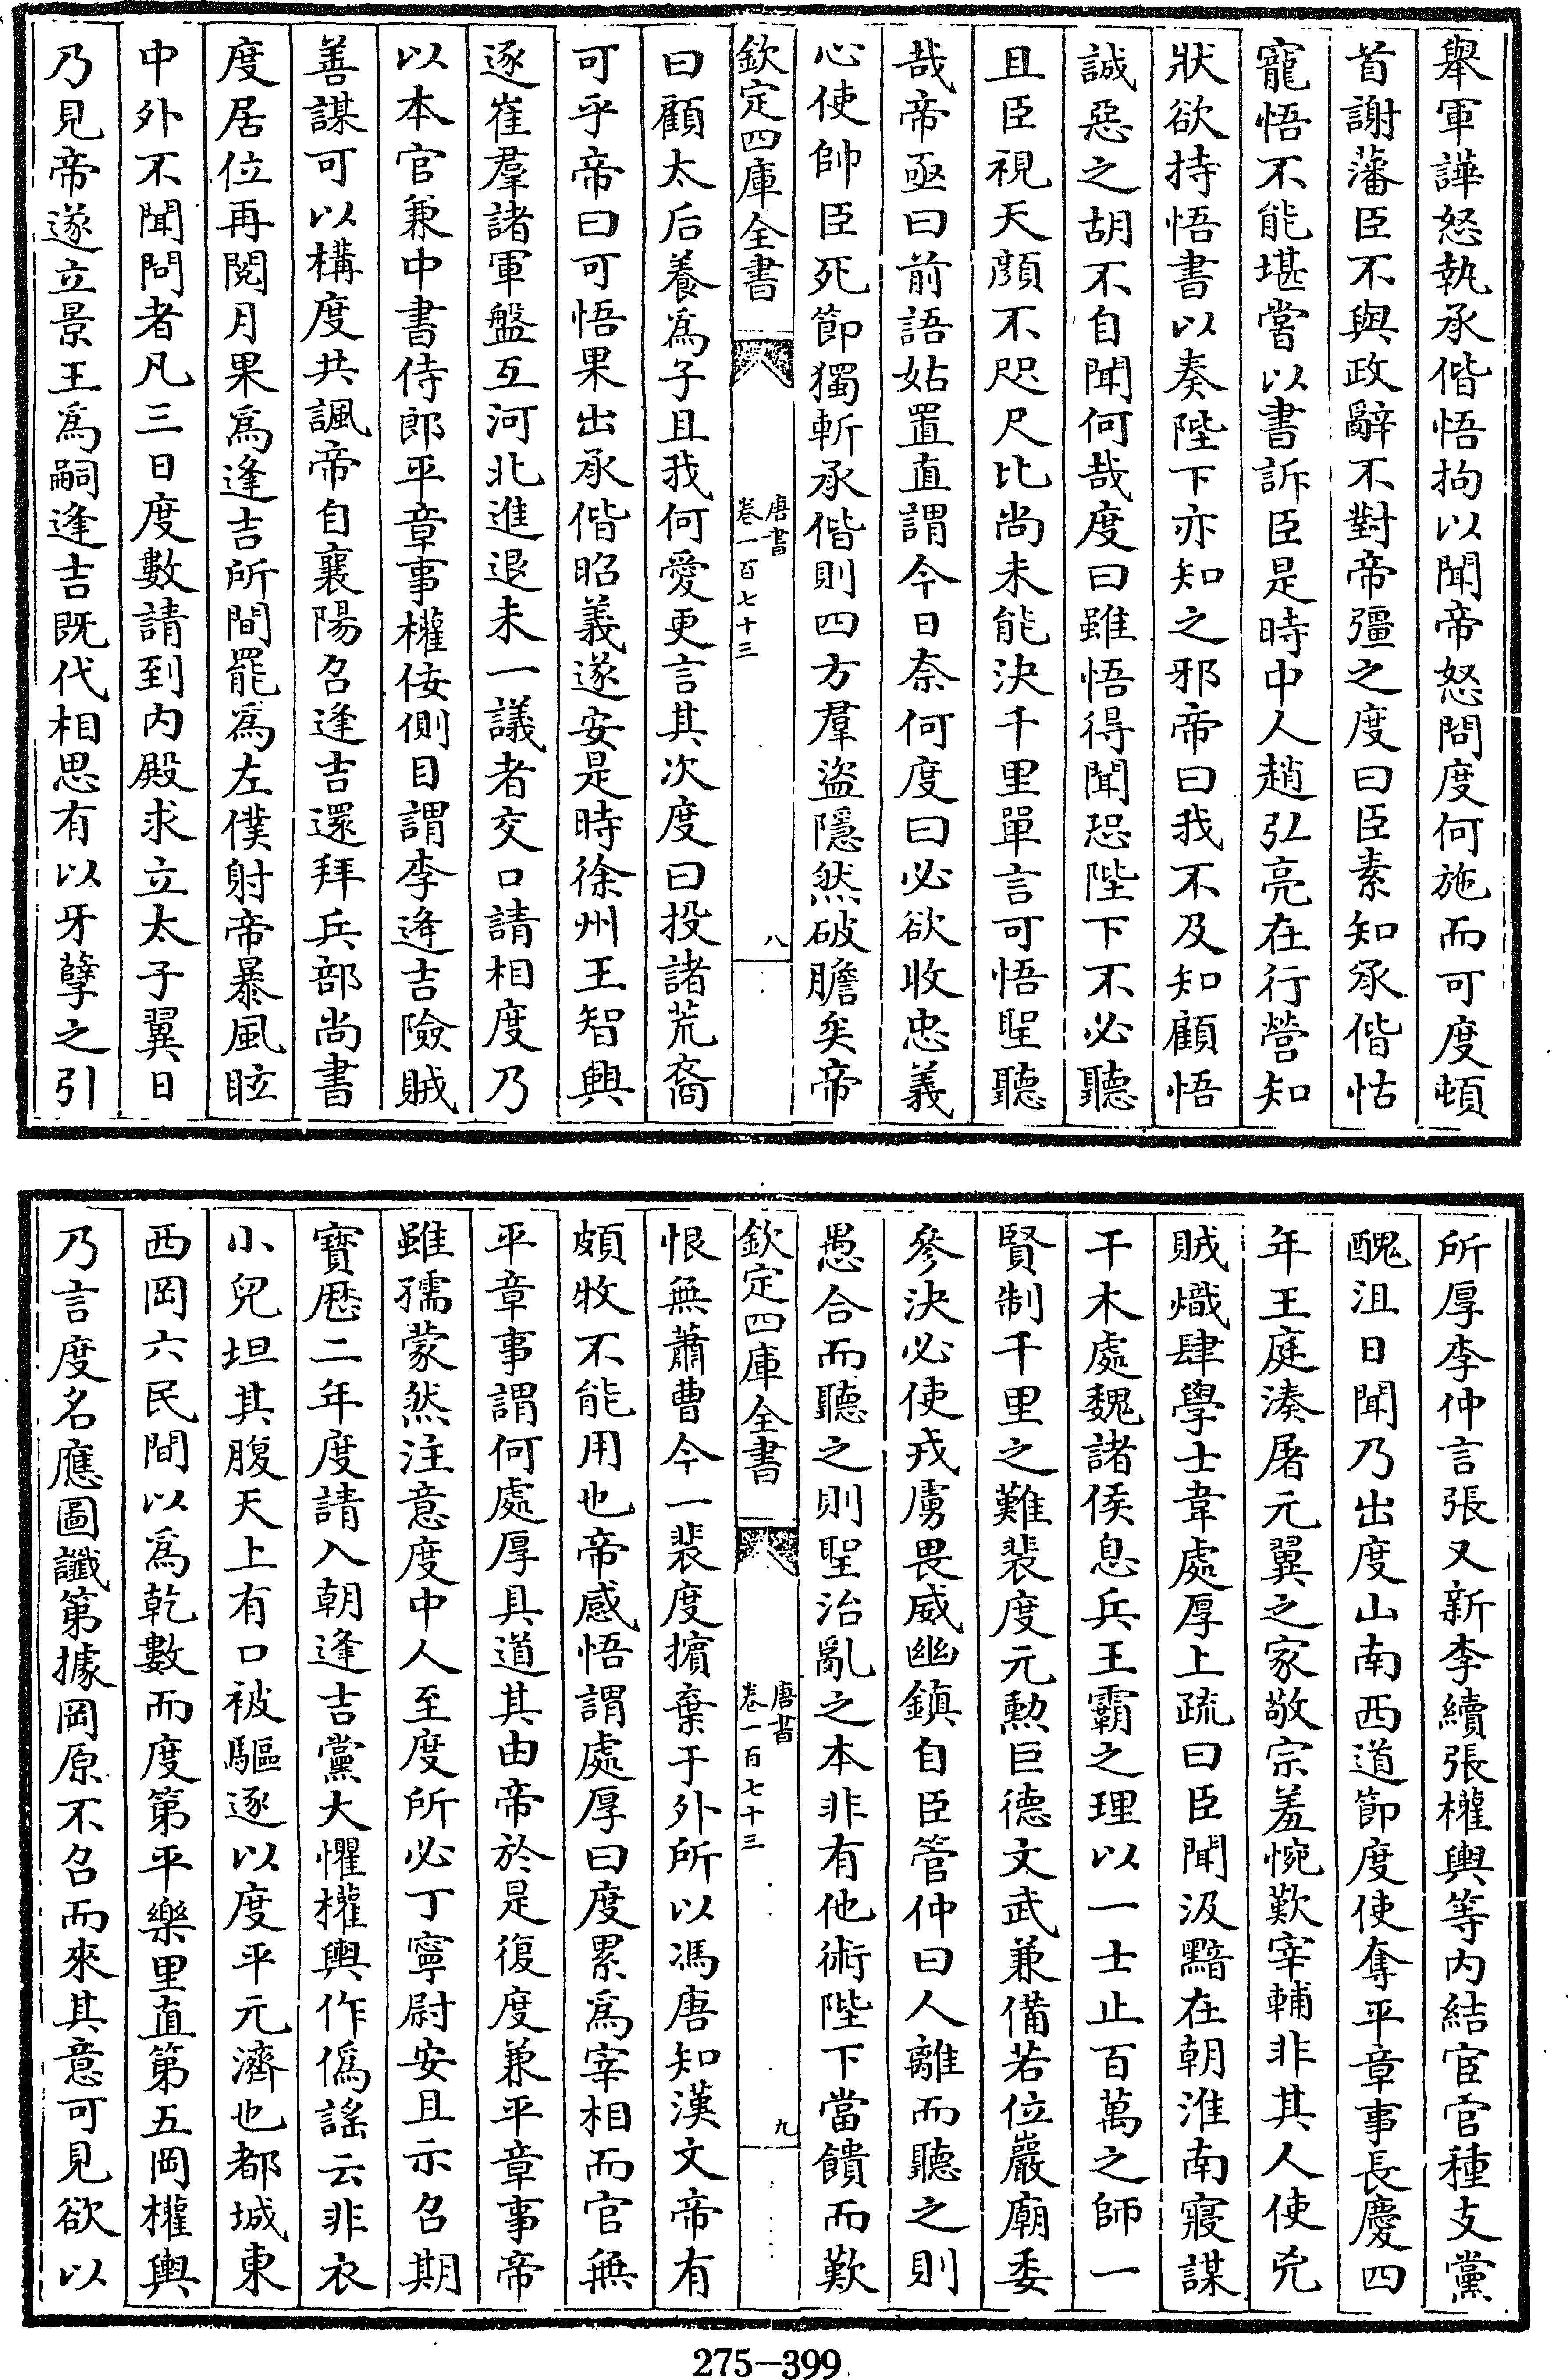 舉軍譁怒執承偕悟拘以聞帝怒問度何施而可度頓
首謝藩臣不與政辭不對帝彊之度曰臣素知承偕怙
寵悟不能堪嘗以書訴臣是時中人趙弘亮在行營知
狀欲持悟書以奏陛下亦知之邪帝曰我不及知顧悟
誠惡之胡不自聞何哉度曰雖悟得聞恐陛下不必聽
且臣視天顔不咫尺比尚未能決千里單言可悟聖聽
哉帝亟曰前語姑置直謂今日奈何度曰必欲收忠義
心使帥臣死節獨斬承偕則四方羣盜隱然破膽矣帝
欽定四庫全書
唐書
卷一百七十三
八
曰顧太后養爲子且我何愛更言其次度曰投諸荒裔
可乎帝曰可悟果出承偕昭義遂安是時徐州王智興
逐崔羣諸軍盤互河北進退未一議者交口請相度乃
以本官兼中書侍郎平章事權佞側目謂李逢吉險賊
善謀可以構度共諷帝自襄陽召逢吉還拜兵部尚書
度居位再閱月果爲逢吉所間罷爲左僕射帝暴風眩
中外不聞問者凡三日度數請到内殿求立太子翼日
乃見帝遂立景王爲嗣逢吉既代相思有以牙孽之引
所厚李仲言張又新李續張權輿等内結宦官種支黨
醜沮日聞乃出度山南西道節度使奪平章事長慶四
年王庭湊屠元翼之家敬宗羞惋歎宰輔非其人使兇
賊熾肆學士韋處厚上疏曰臣聞汲黯在朝淮南寢謀
干木處魏諸侯息兵王霸之理以一士止百萬之師一
賢制千里之難裴度元勲巨德文武兼備若位巖廟委
參決必使戎虜畏威幽鎮自臣管仲曰人離而聽之則
愚合而聽之則聖治亂之本非有他術陛下當饋而歎
欽定四庫全書
唐書
卷一百七十三
九
恨無蕭曹今一裴度擯棄于外所以馮唐知漢文帝有
頗牧不能用也帝感悟謂處厚曰度累爲宰相而官無
平章事謂何處厚具道其由帝於是復度兼平章事帝
雖孺蒙然注意度中人至度所必丁寧尉安且示召期
寶厯二年度請入朝逢吉黨大懼權輿作僞謠云非衣
小兒坦其腹天上有口被驅逐以度平元濟也都城東
西岡六民間以爲乾數而度第平樂里直第五岡權輿
乃言度名應圖讖第據岡原不召而來其意可見欲以
275-399